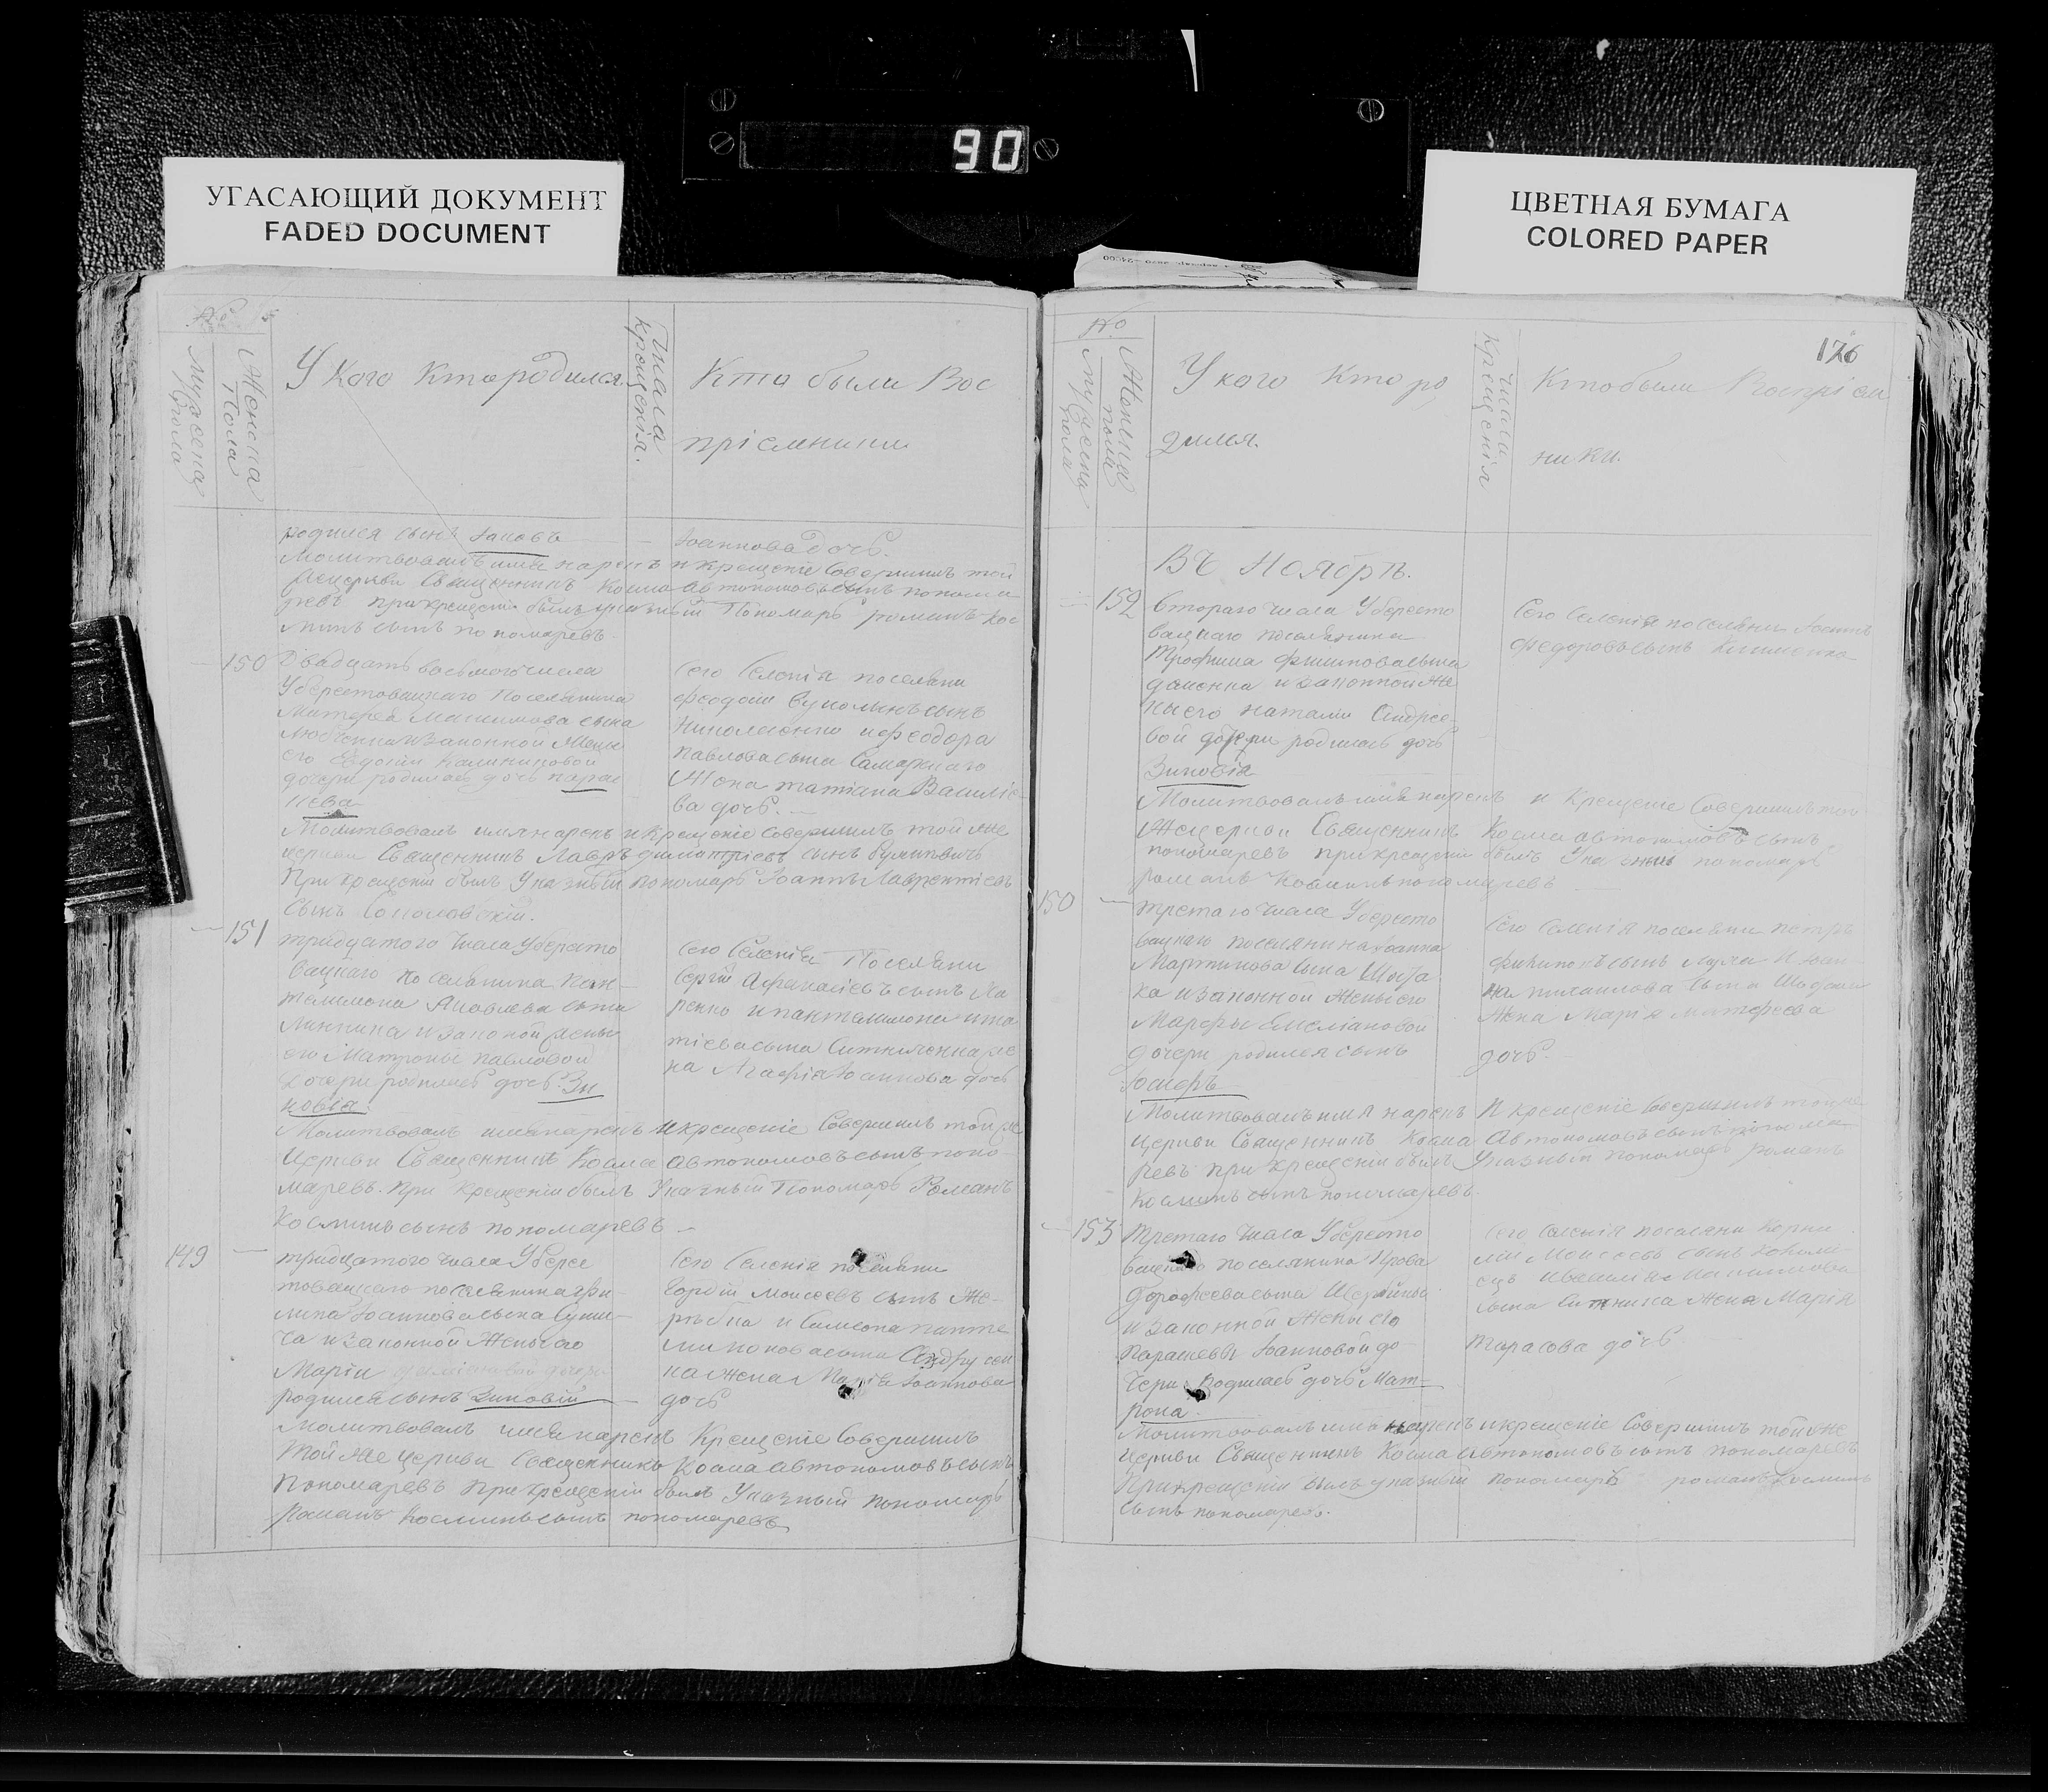 90
УГАСАЮЩИЙ ДОКУМЕНТ
FADED DOCUMENT
ЦВЕТНАЯ БУМАГА
COLORED PAPER
№
Мужеска пола
Женска Пола
У кого кто родился
Числа крещенія.
Кто были Вос
пріемники
родился сынъ Іаковъ
Іоаннова дочь.
Молитвовалъ имя нареклъ и крещеніе Совершилъ той
же церкви Священникъ Косма Автономовъ сынъ понома
ревъ при крещеніи былъ указный Пономарь романъ Кос
минъ сынъ пономаревъ
150
двадцать восьмого числа
У берестовацкаго Поселянина
его Евдокіи Калиниковой
дочери родилась дочь парас
кева
сего Селенія поселяни
Николаенко и феодора
Павлова сына
Жона татіана Василіе
ва дочь.
Молитвовалъ имя нареклъ и крещеніе Совершилъ той же
церкви Священникъ Лавръ димитріевъ сынъ
При крещеніи былъ Указный пономарь Іоаннъ Лаврентіевъ
Сынъ Соколовскій.
151
тридцатого числа У бересто
вацкаго поселянина пан
телимона Яковлева сына
и законной жены
его Матроны павловой
дочери родилась дочь Зи
новія.
сего Селенія Поселяни
Сергій Афанасіевъ сынъ
и пантелимона игна
тіева сына Ситниченка же
на Агафія Іоаннова дочь
Молитвовалъ имя нареклъ и крещеніе Совершилъ той же
Церкви Священникъ Косма Автономовъ сынъ поно
маревъ. при крещеніи былъ Указный Пономарь Романъ
Косминъ сынъ пономаревъ
149
тридцатого числа У берес
товацкаго поселянина фи
липа Іоаннова сына
и законной жены его
Маріи
родился сынъ Зиновій
сего Селенія поселяни
Гордій Моисеевъ сынъ Же
ребко и Симеона панте
лимонова сына Андрусен
ка жена Марія Іоаннова
дочь
Молитвовалъ имя нареклъ Крещеніе Совершилъ
той же церкви Священникъ Косма Автономовъ сынъ
Пономаревъ при крещеніи былъ Указный пономарь
Романъ Косминъ сынъ пономаревъ
126
№
Мужеска пола
Женска пола
У кого кто ро
дился.
Числа Крещенія
Кто были Воспріем
ники.
Въ Ноябрѣ.
152
втораго числа У бересто
вацкаго поселянина
Трофима филипова сына
и законной же
ны его наталіи Андрее
вой дочери родилась дочь
Зиновія
Сего Селенія поселянинъ Іоаннъ
федоровъ сынъ
Молитвовалъ имя нареклъ и Крещеніе Совершилъ той
же церкви Священникъ Косма автономовъ сынъ
пономаревъ при крещеніи былъ Указный пономарь
романъ Косминъ пономаревъ
150
третаго числа У бересто
вацкаго поселянина Іоанна
Мартинова сына
и законной жены его
Марфы Емеліановой
дочери родился сынъ
Іосифъ
Сего Селенія поселяни петръ
филиповъ сынъ
михаилова сына
жена Марія Матфеева
дочь.
Молитвовалъ имя нареклъ и крещеніе Совершилъ той же
церкви Священникъ Косма Автономовъ сынъ понома
ревъ при крещеніи былъ Указный пономарь романъ
Косминъ сынъ пономаревъ.
153
Третаго числа У бересто
вацкаго поселянина Прова
дорофеева сына
и законной жены его
Парасевы Іоанновой до
чери Родилась дочь Мат
рона.
сего Селенія поселяни Корни
лій Моисеевъ сынъ
сына Ситника жена Марія
Тарасова дочь
Молитвовалъ имя нареклъ и крещеніе Совершилъ той же
Церкви Священникъ Косма автономовъ сынъ пономаревъ
При крещеніи былъ указный пономарь романъ Косминъ
сынъ пономаревъ.